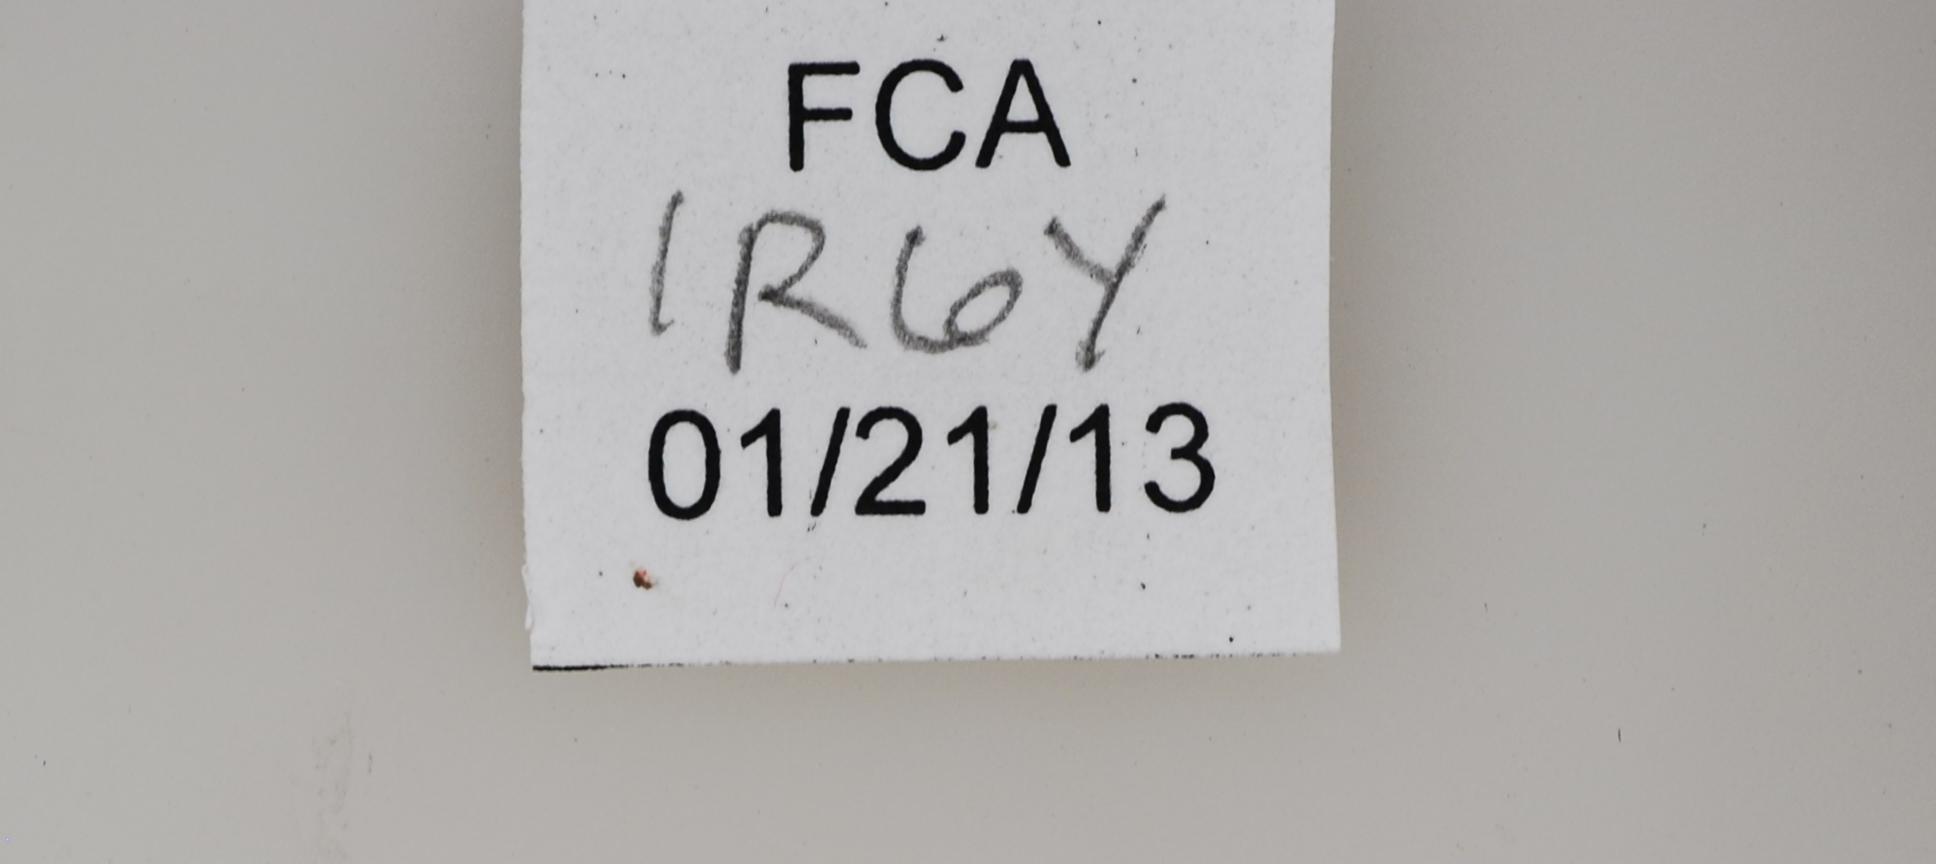 FCA
1R6Y
01/21/13